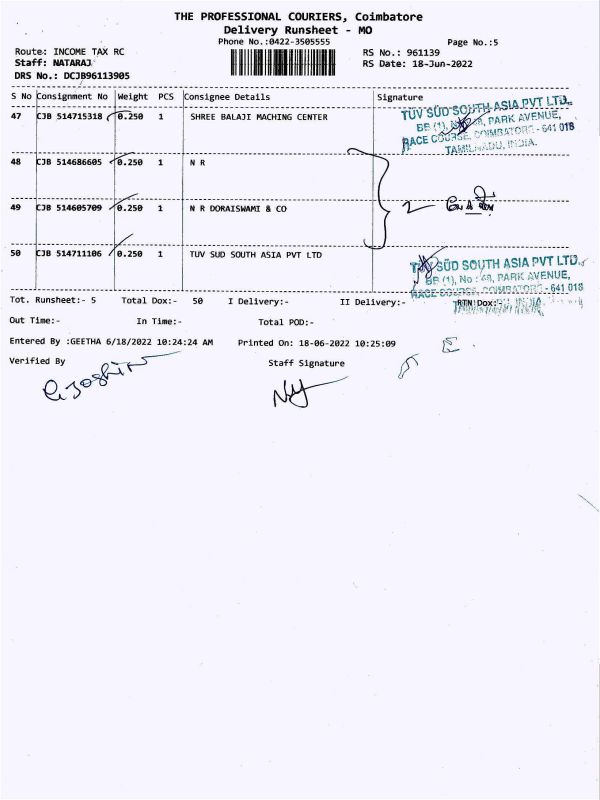 THE PROFESSIONAL COURIERS, Coimbatore
Delivery Runsheet - MO
Phone No.:0422-3505555
Page No.:5
Route: INCOME TAX RC
RS No.: 961139
Staff: NATARAJ
RS Date: 18-Jun-2022
DRS No.: DCJB96113905
S No Consignment No Weight PCS Consignee Details Signature
47 CJB 514715318 0.250 1 SHREE BALAJI MACHING CENTER
TÜV SÜD SOUTH ASIA PVT LTD.,
BF (1), No : 48, PARK AVENUE,
RACE COURSE, COIMBATORE - 641 018
TAMILNADU, INDIA.
48 CJB 514686605 0.250 1 N R
49 CJB 514605709 0.250 1 N R DORAISWAMI & CO
2
50 CJB 514711106 0.250 1 TUV SUD SOUTH ASIA PVT LTD
TÜV SÜD SOUTH ASIA PVT LTD.,
BF (1), No : 48, PARK AVENUE,
RACE COURSE, COIMBATORE - 641 018
Tot. Runsheet:- 5 Total Dox:- 50 I Delivery:- II Delivery:- RTN Dox:-
Out Time:- In Time:- Total POD:-
Entered By :GEETHA 6/18/2022 10:24:24 AM Printed On: 18-06-2022 10:25:09
Verified By Staff Signature
G. Joshin